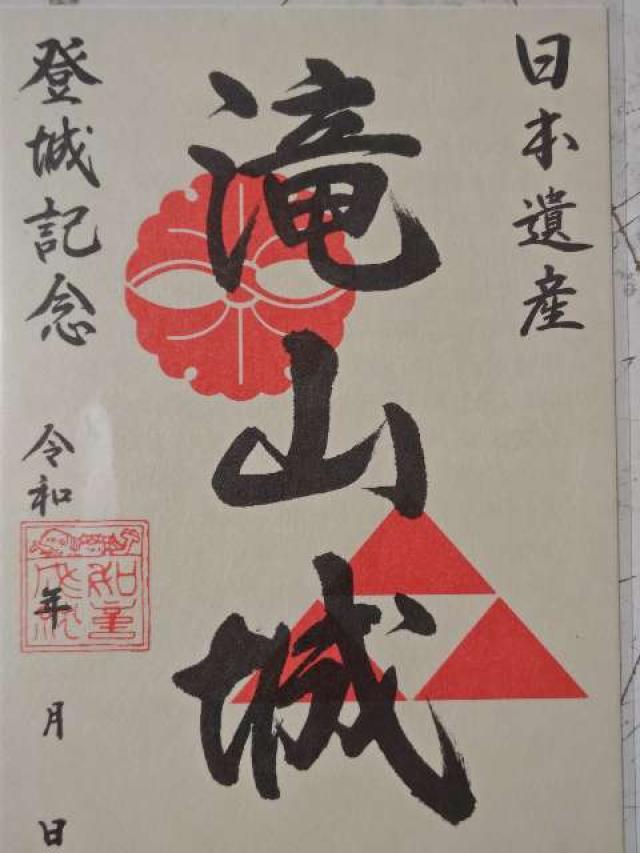 日本遺産
滝山城
登城記念
令和 年 月 日
如意成就